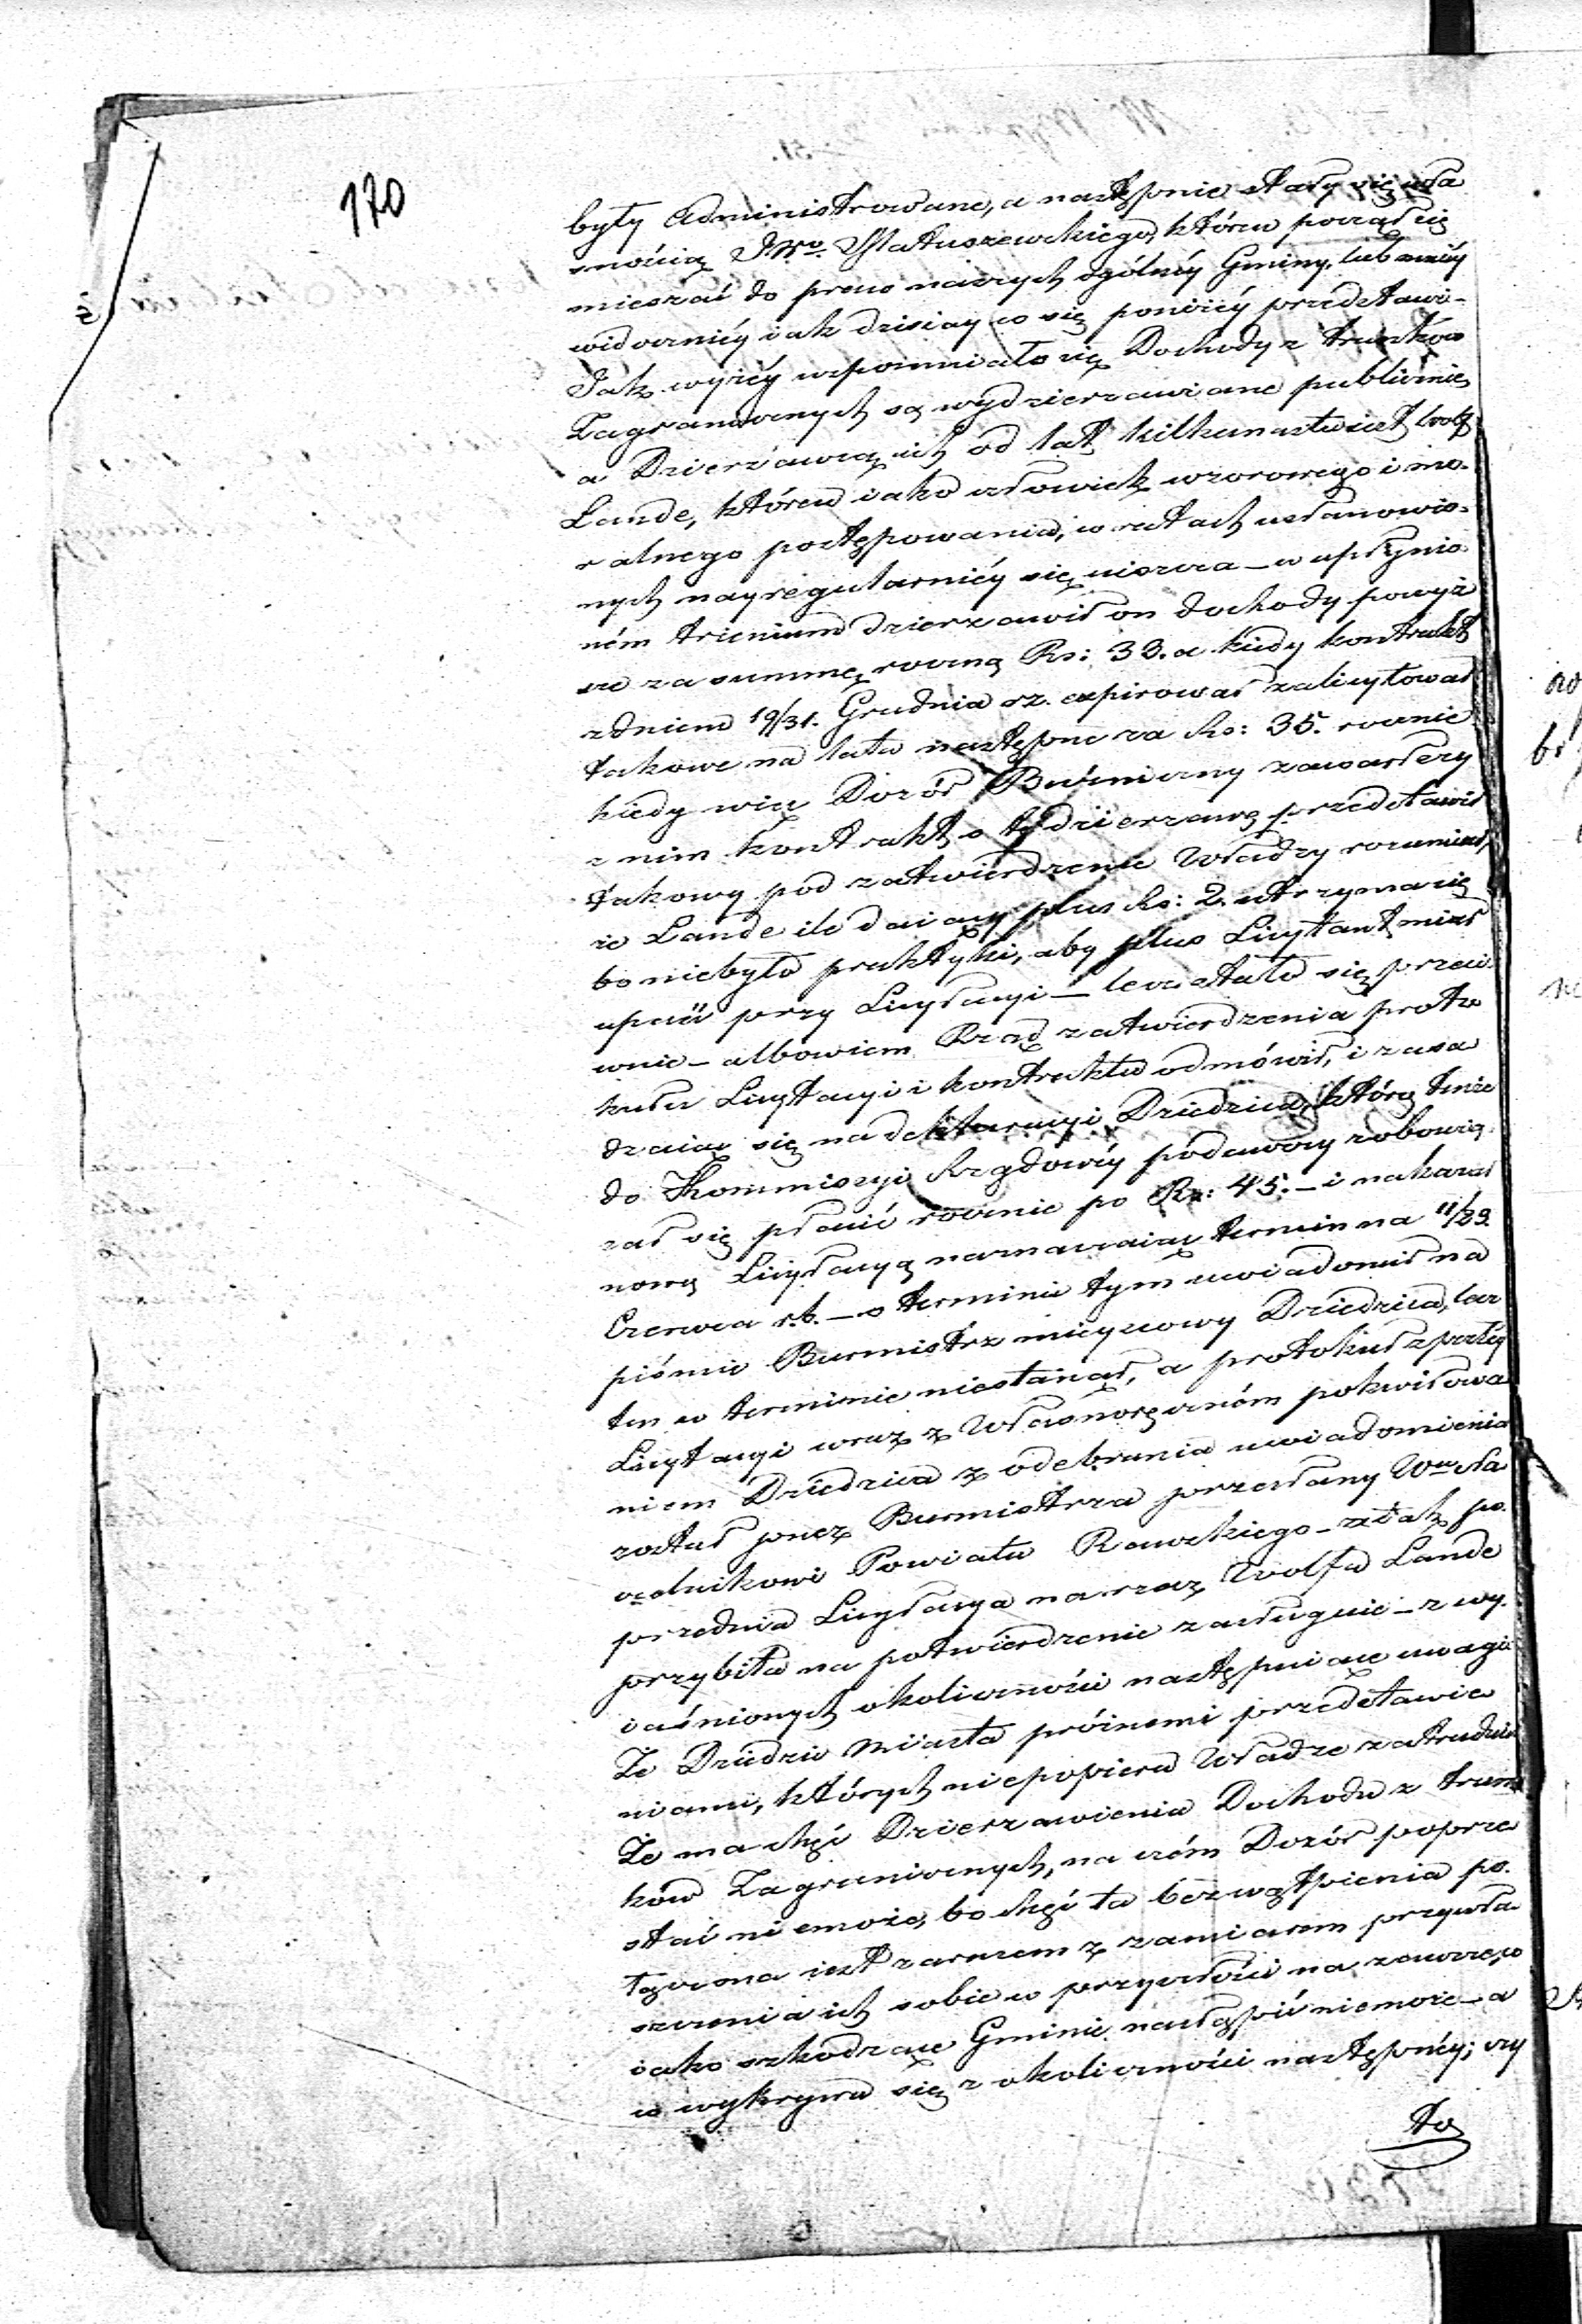 170
były Administrowane, a następnie stały się wła
snością JWo. Matuszewskiego, który począł się
mieszać do praw naszych ogólnéy Gminy, lub mniéy
widoczniéy iak dzisiay co się poniżéy przedstawi-
Jak wyżéy wspomniało się Dochody z trunków
Zagranicznych są wydzierzawiane publicznie
a Dzierżawcą ich od lat kilkunastu iest Wolf
Lande, który iako człowiek wzorowego i mo-
ralnego postępowania, w ratach ustanowio-
nych nayregularniéy się uiszcza – w upłynio
ném trienium dzierzawił on dochody powyż
sze za summę roczną Rs: 33. a kiedy kontrakt
z dniem 19/31. Grudnia rz. expirował zalicytował
takowe na lata następne za Rs: 35. rocznie
kiedy więc Dozór Bużniczny zawarłszy
z nim kontrakt o tę dzierzawę przedstawił
takowy pod zatwierdzenie Władzy rozumiał,
że Lande ile daiący plus Rs: 2. utrzyma się
bo niebyło praktyki, aby plus Licytant miał
upaść przy Licytacyi – lecz stało się przeci
wnie – albowiem Rząd zatwierdzenia proto
kułu Licytacyi i kontraktu odmówił, i zasa
dzaiąc się na deklaracyi Dziedzica, którą tenże
do Kommissyi Rządowéy podawszy zobowią
zał się płacić rocznie po Rs: 45. – i nakazał
nową Licytacyą naznaczaiąc termin na 11/23.
Czerwca r.b. – o terminie tym uwiadomił na
piśmie Burmistrz mieyscowy Dziedzica, lecz
ten w terminie niestanął, a protokuł spełzłéy
Licytacyi wraz z Własnoręcznóm pokwitowa
niem Dziedzica z odebrania uwiadomienia
został przez Burmistrza przesłany Wmu Na
czelnikowi Powiatu Rawskiego – zatak po-
przednia Licytacya na rzecz Wolfa Lande
przybita na potwierdzenie zasługuie – z wy-
iaśnionych okoliczności następuiące uwagi
Że Dziedzic Miasta próżnemi przedstawie
niami, których niepopiera Władze zatrudnia
Że ma chęć Dzierzawienia Dochodu z trun
ków Zagranicznych, na czém Dozór poprze
stać niemoże, bo chęć ta bezwątpienia po-
łączona iest zarazem z zamiarem przywła
szczenia ich sobie w przyszłości na zawsze, co
iako szkodzące Gminie nastąpić niemoże – a
co wykrywa się z okoliczności następnéy; czy
to